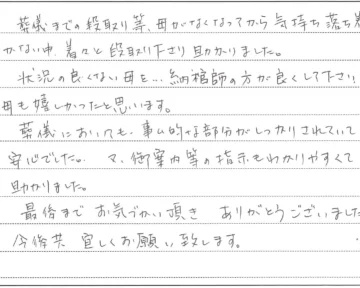 葬儀までの段取り等、母がなくなってから気持ち落ち着
かない中、着々と段取り下さり助かりました。
状況の良くない母を…納棺師の方が良くして下さい
母も嬉しかったと思います。
葬儀においても、事ム的な部分がしっかりされていて
安心でした。マ、御案内等の指示もわかりやすくて
助かりました。
最后まで お気づかい頂き ありがとうございました
今後共 宜しくお願い致します。